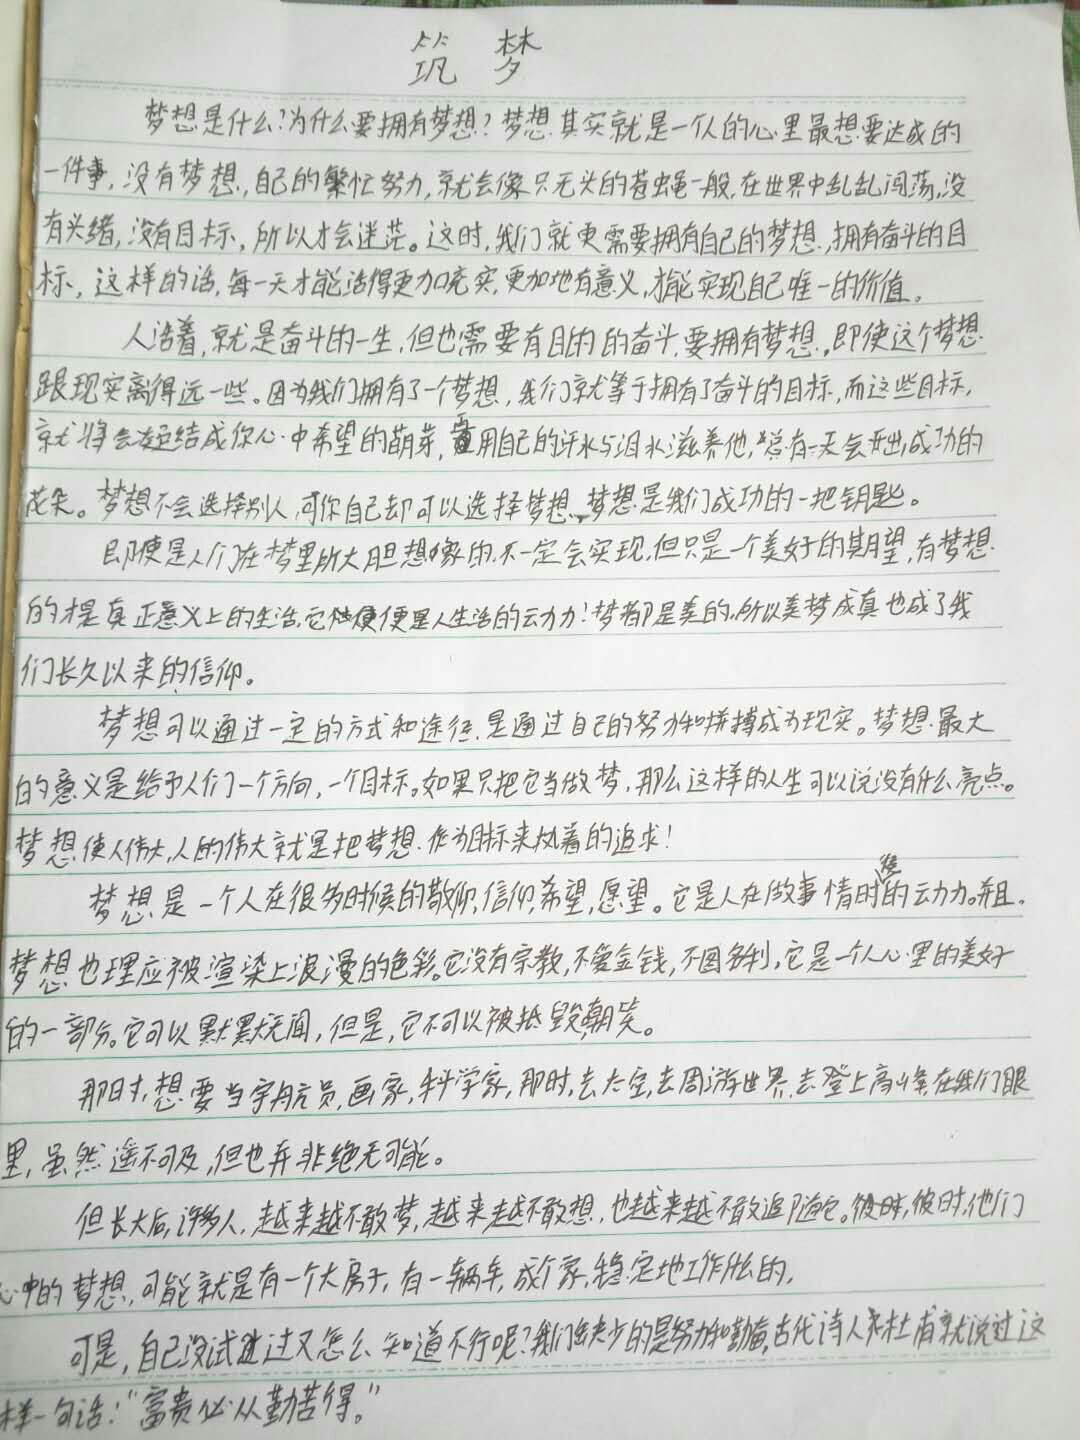 筑 梦
梦想是什么?为什么要拥有梦想?梦想其实就是一个人的心里最想要达成的
一件事,没有梦想,自己的繁忙努力,就会像只无头的苍蝇一般,在世界中乱乱闯荡,没
有头绪,没有目标,所以才会迷茫。这时,我们就更需要拥有自己的梦想,拥有奋斗的目
标,这样的话,每一天才能活得更加充实,更加地有意义,才能实现自己唯一的价值。
人活着,就是奋斗的一生,但也需要有目的的奋斗,要拥有梦想,即使这个梦想
跟现实离得远一些。因为我们拥有了一个梦想,我们就等于拥有了奋斗的目标,而这些目标,
就将会凝结成你心中希望的萌芽,用自己的汗水与泪水滋养他,总有一天会开出成功的
花朵。梦想不会选择别人,可你自己却可以选择梦想,梦想是我们成功的一把钥匙。
即使是人们在梦里所大胆想像的,不一定会实现,但只是一个美好的期望,有梦想
的才是真正意义上的生活,它便是人生活的动力!梦都是美的,所以美梦成真也成了我
们长久以来的信仰。
梦想可以通过一定的方式和途径,是通过自己的努力和拼搏成为现实。梦想最大
的意义是给予人们一个方向,一个目标。如果只把它当做梦,那么这样的人生可以说没有什么亮点。
梦想使人伟大,人的伟大就是把梦想作为目标来执着的追求!
梦想是一个人在很多时候的敬仰,信仰,希望,愿望。它是人在做事情时候的动力。并且,
梦想也理应被渲染上浪漫的色彩。它没有宗教,不爱金钱,不图名利,它是一个人心里的美好
的一部分。它可以默默无闻,但是,它不可以被抵毁,嘲笑。
那时,想要当宇航员,画家,科学家,那时,去太空,去周游世界,去登上高峰,在我们眼
里,虽然遥不可及,但也并非绝无可能。
但长大后,许多人,越来越不敢梦,越来越不敢想,也越来越不敢追随它。彼时,彼时,他们
心中的梦想,可能就是有一个大房子,有一辆车,成个家,稳定地工作什么的,
可是,自己没试过又怎么知道不行呢?我们缺少的是努力和勤奋,古代诗人杜甫就说过这
样一句话:“富贵必从勤苦得。”